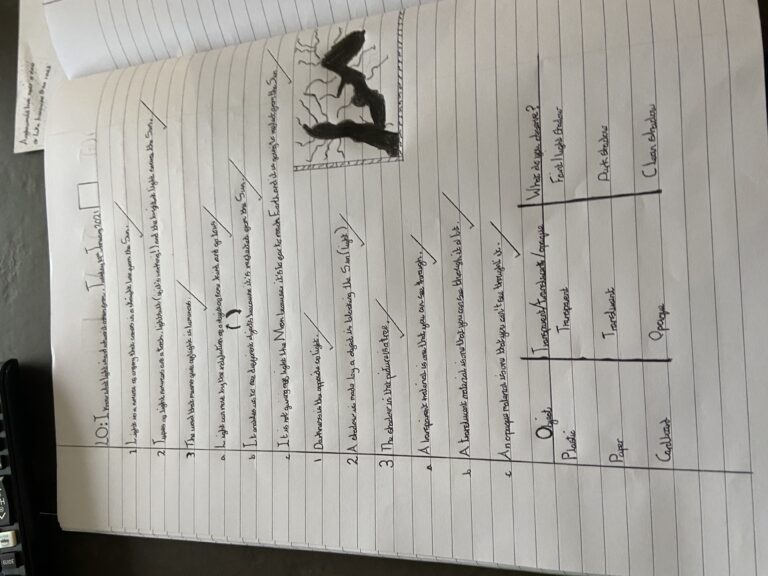 LO: I know what light is and where it comes from. Tuesday 5th January 2021
1 Light is a source of energy that comes in a straight line from the Sun.
2 Types of light sources are a torch, lightbulb (if it's working!) and the brightest light comes the Sun.
3 The word that means gives off light is luminous.
a Light can move by the
b It enables us to see different objects because it is reflected from the Sun.
c It is not giving off light the Moon because it's to get to reach Earth and it is going to reflect from the Sun
1 Darkness is the opposite to light.
2 A shadow is made by a object is blocking the Sun (light)
3 The shadow in that picture is a tree.
a A transparent material is one that you can see through.
b A translucent material is one that you can see through it a bit.
c An opaque material is one that you can't see through it.
Object Transparent/Translucent/opaque What do you observe?
Plastic Transparent Faint/light shadow
Paper Translucent shadow
Cardboard Opaque Clear shadow